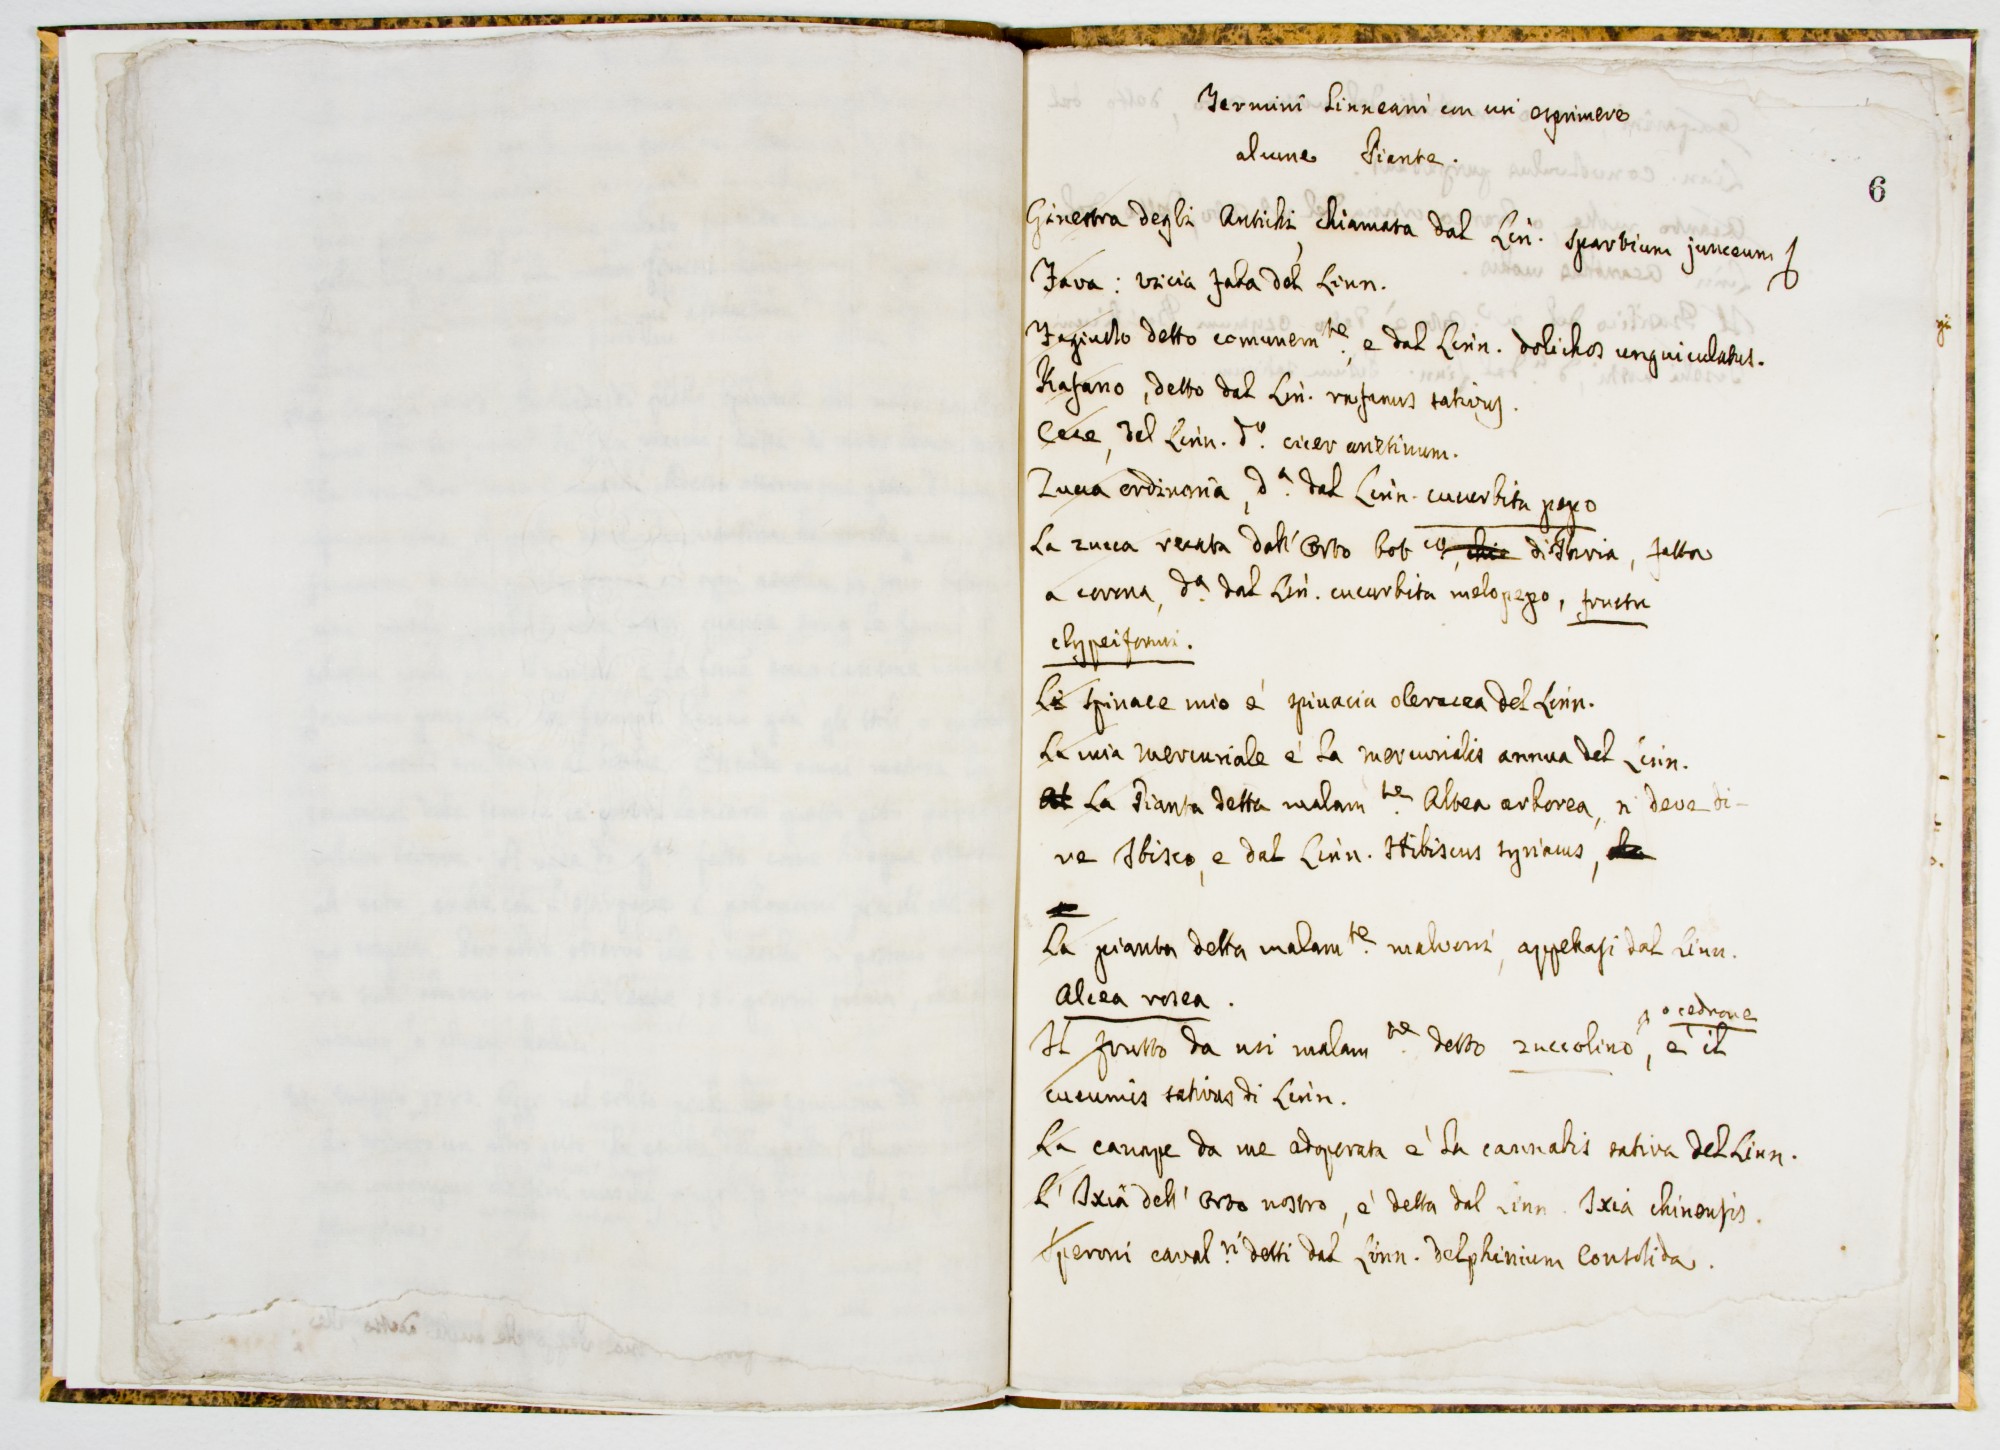 Termini Linneani con cui esprimere
alcune Piante.
6
Ginestra degli Antichi, chiamata dal Lin. Spartium junceum
Fava: vicia faba del Linn.
Fagiuolo detto comunem.te, e dal Linn. dolichos unguiculatus.
Rafano, detto dal Lin. rafanus sativus.
Cece, del Linn. d.o cicer arietinum.
Zucca ordinaria, d.a dal Linn. cucurbita pepo
La zucca recata dall'Orto bot.co, che di Pavia, fatta
a corona, d.a dal Lin. cucurbita melopepo, fructu
clypeiformi.
Lo Spinace mio è spinacia oleracea del Linn.
La mia mercuriale è la mercurialis annua del Linn.
Al La Pianta detta malam.te Altea arborea, si deve di-
re Ibisco, e dal Linn. Hibiscus syriacus, la
La pianta detta malam.te malvoni, appellasi dal Linn.
Alcea rosea.
o cedrone
Il frutto da noi malam.te detto zuccolino, è il
cucumis sativus di Linn.
La canape da me adoperata è la cannabis sativa del Linn.
L'Ixia dell'Orto nostro, è detta dal Linn. Ixia chinensis.
Speroni caval.ri detti dal Linn. delphinium Consolida.